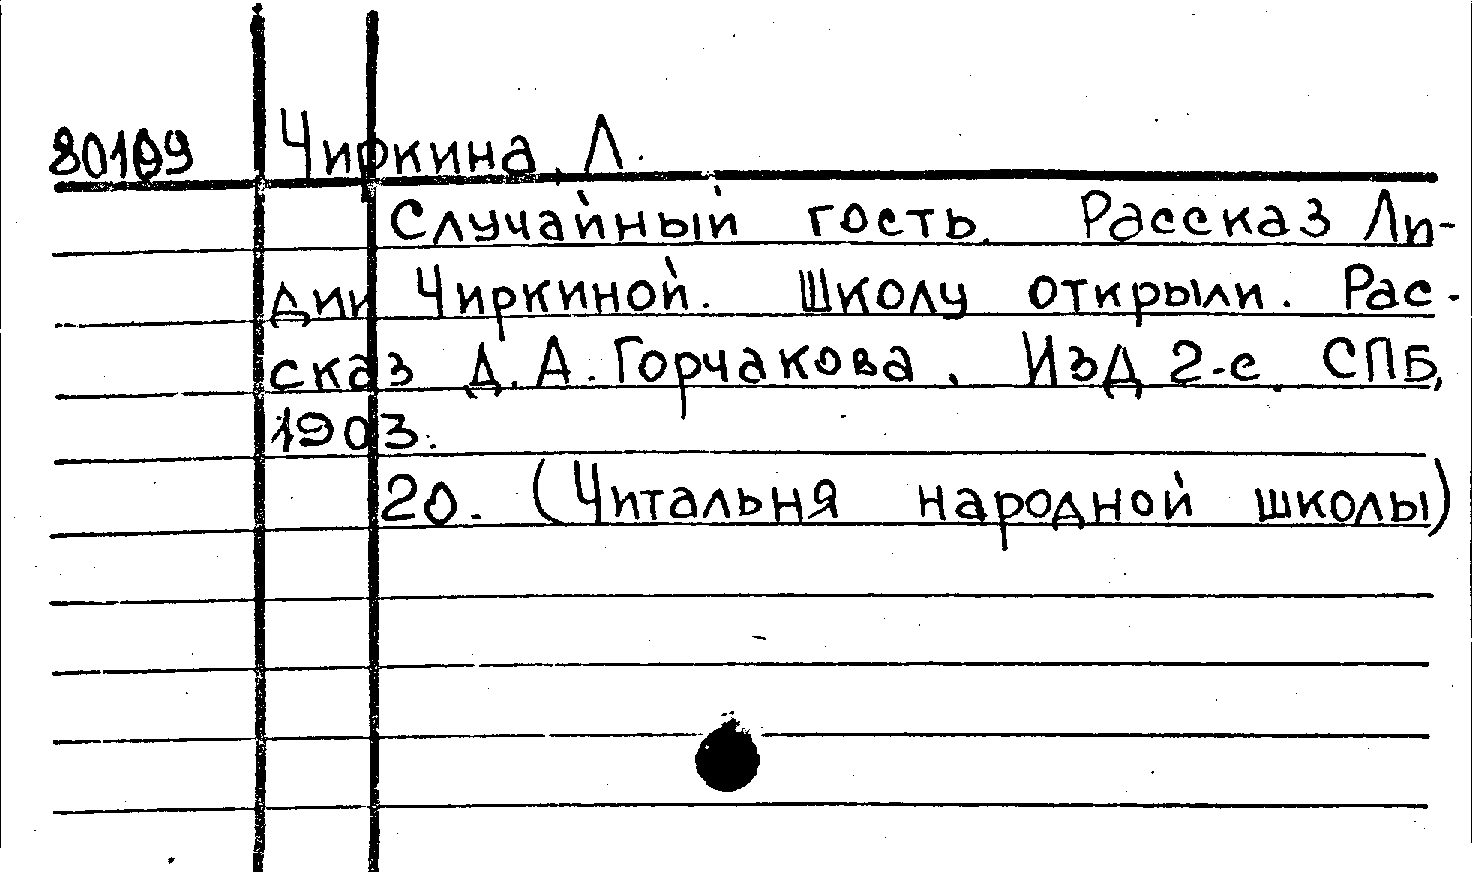 80109 Чиркина, Л.
Случайный гость. Рассказ Ли-
дии Чиркиной. Школу открыли. Рас-
сказ Д. А. Горчакова. Изд 2-е. СПБ,
1903.
20. (Читальня народной школы)